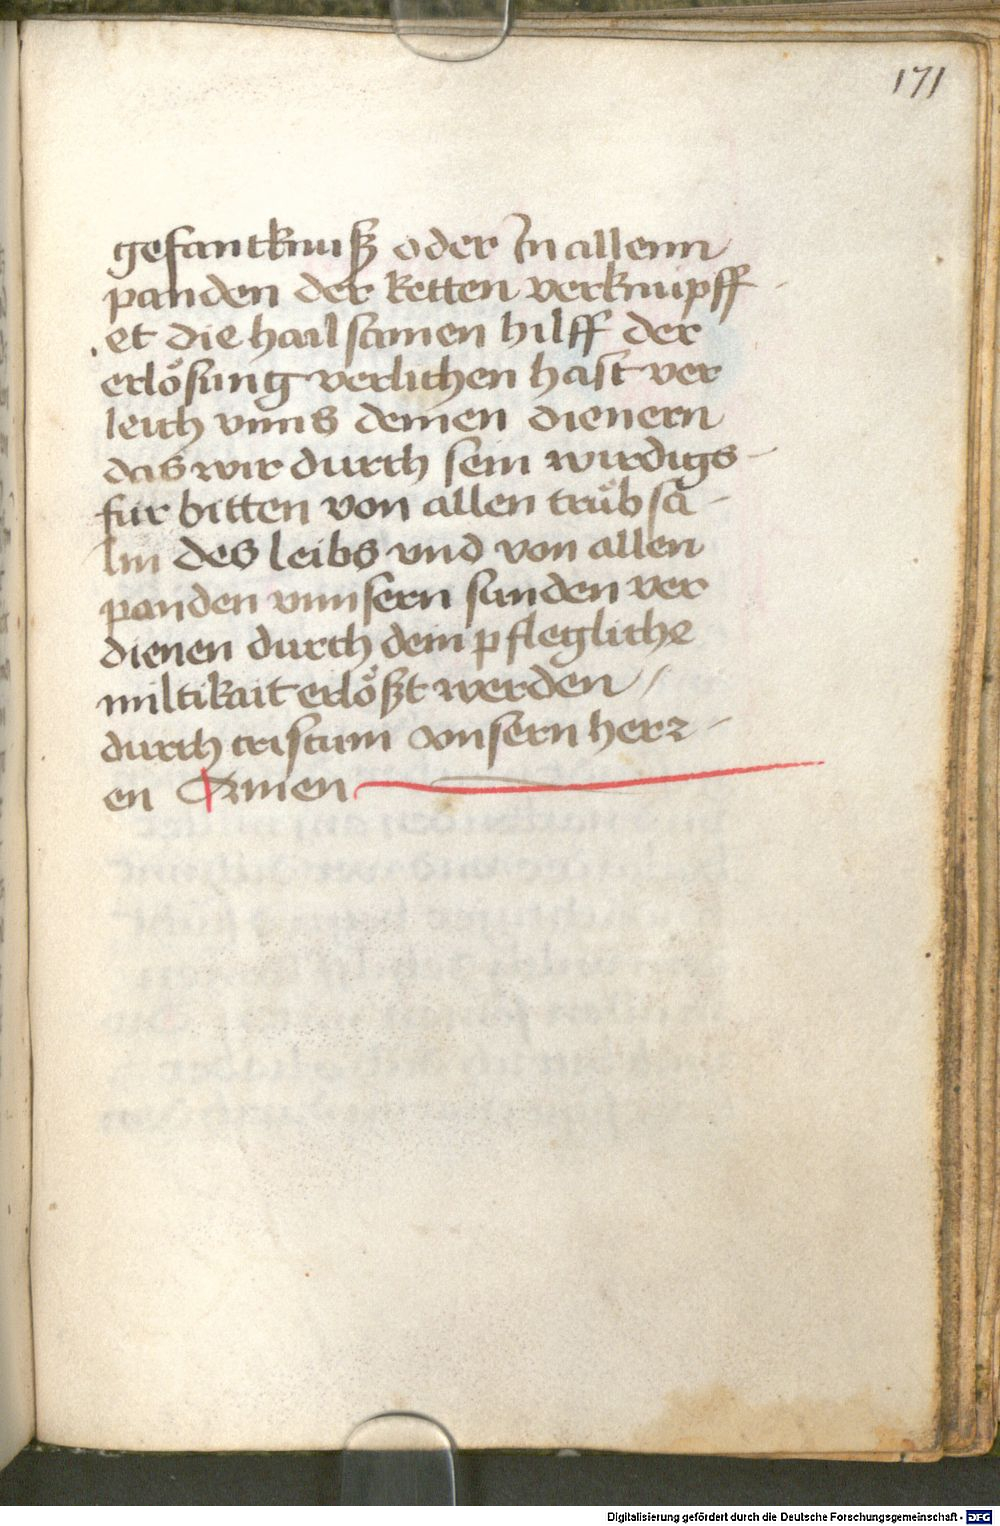 171
gefantknuiß oder In allenn
panden der ketten verknüpff
et die hailsamen hilff der
erlösung verlichen hast ver
leich vnns deinen dienern
das wir durch sein wirdigs
für bitten von allen trübsa-
lln des leibs vnd von allen
panden vnnsern sunden ver
dienen durch dein pfleglichͤ
miltikait erlößt werden /
durch cristum vnnsern herr-
en Amen
Digitalisierung gefördert durch die Deutsche Forschungsgemeinschaft - DFG